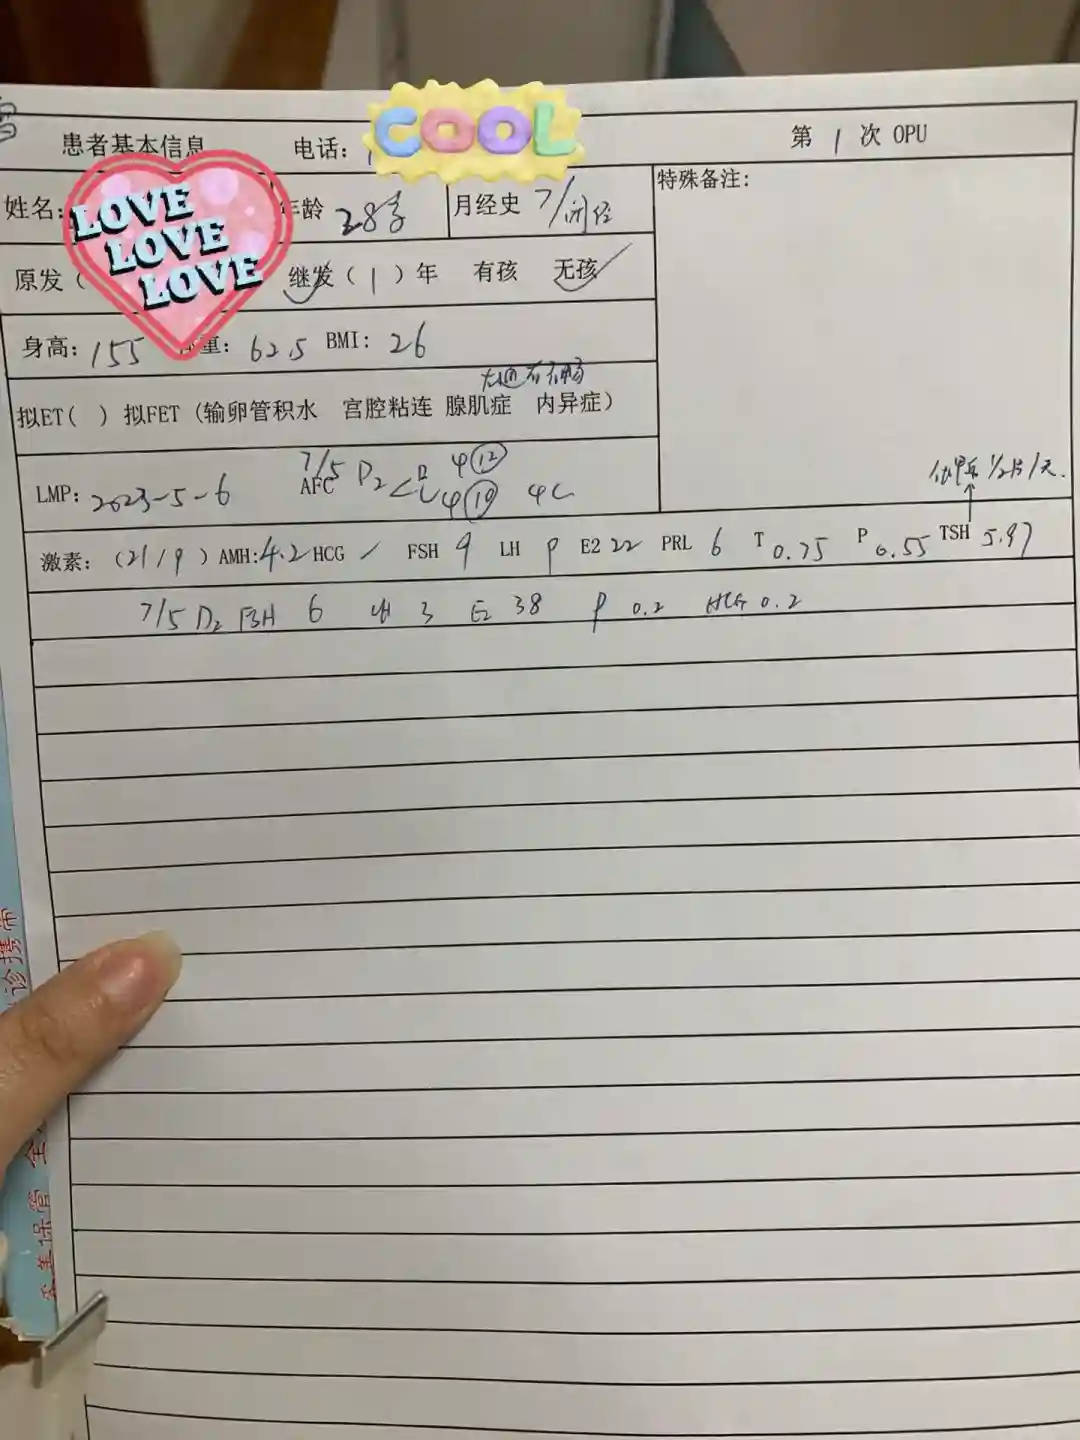 COOL
患者基本信息 电话: 第 1 次 OPU
LOVE
LOVE
LOVE
姓名: 年龄 38岁 月经史 7/闭经
特殊备注:
原发( 继发(1)年 有孩 无孩
身高:155 重: 62.5 BMI: 26
拟ET( ) 拟FET (输卵管积水 宫腔粘连 腺肌症 内异症)
LMP: 2023-5-6 7/5 D2 AFC
优甲乐 1/2片/天.
激素: (21/9) AMH:4.2 HCG / FSH 9 LH 9 E2 22 PRL 6 T 0.75 P 0.55 TSH 5.97
7/5 D2 FSH 6 LH 3 E2 38 P 0.2 HCG 0.2